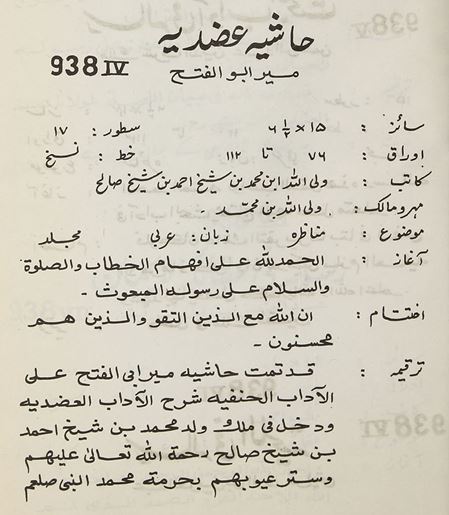 حاشیه عضدیه
938 IV
میر ابو الفتح
سائز : ۱۵ × ۶ ۱/۲ سطور : ۱۷
اوراق : ۷۶ تا ۱۱۲ خط : نسخ
کاتب : ولی الله ابن محمد بن شیخ احمد بن شیخ صالح
مہر ومالک : ولی الله بن محمّد ۔
موضوع : مناظره زبان : عربی مجلد
آغاز : الحمد لله علی افهام الخطاب والصلوة
والسلام علی رسوله المبعوث ۔
اختتام : ان الله مع الذین التقو والذین هم
محسنون ۔
ترقیمه : قد تمت حاشیه میر ابی الفتح علی
الآداب الحنفیه شرح الآداب العضدیه
ودخل فی ملك ولد محمد بن شیخ احمد
بن شیخ صالح رحمة الله تعالیٰ علیهم
وستر عیوبهم بحرمة محمد النبی صلعم